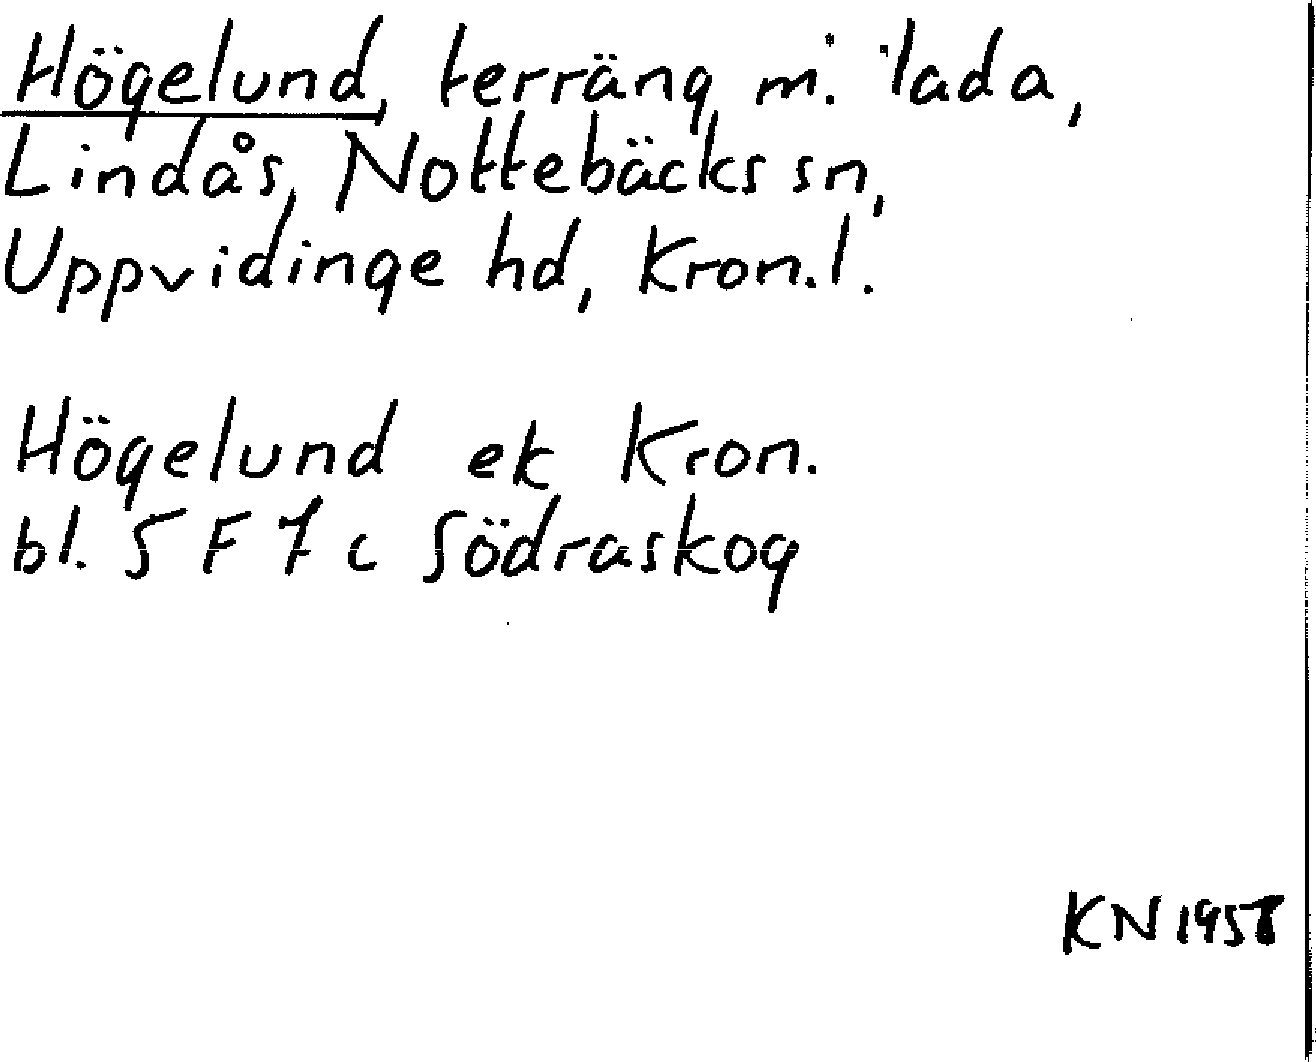 Högelund, terräng m. lada,
Lindås, Nottebäcks sn,
Uppvidinge hd, Kron.l.
Högelund ek Kron.
bl. 5 F 7 c Södraskog
KN 1958